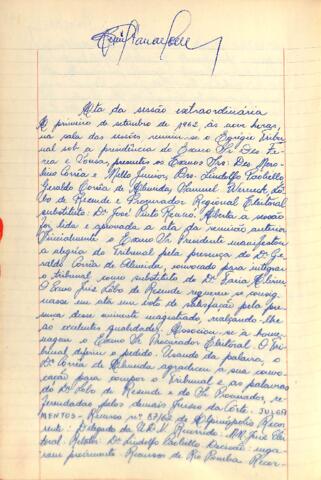 Ata da sessão extraordinária
A primeiro de setembro de 1962, às nove horas,
na sala das sessões reuniu-se o Egrégio Tribu-
nal sob a presidência do Exmo Sr. Des. Fa-
ria e Sousa, presentes os Exmos Srs: Des. Mar-
cio Corrêa e Mello Junior, Drs. Lindolfo Paolielo
Geraldo Corrêa de Almeida, Manuel Werneck, Lô-
bo de Resende e Procurador Regional Eleitoral
substituto: Dr. José Pinto Renró. Aberta a sessão
foi lida e aprovada a ata da reunião anterior
Inicialmente o Exmo Sr. Presidente manifestou
a alegria do Tribunal pela presença do Dr. Ge-
raldo Corrêa de Almeida, convocado para integrar
o tribunal como substituto do Dr. Faria
O Exmo Juiz Lôbo de Resende requereu se consig-
nasse em ata um voto de satisfação pela pre-
sença desse eminente magistrado, realçando-lhe
as excelentes qualidades. Associou-se à home-
nagem o Exmo Sr. Procurador Eleitoral. O Tri-
bunal deferiu o pedido. Usando da palavra, o
Dr. Corrêa de Almeida agradeceu a sua convo-
cação para compor o Tribunal e as palavras
do Dr. Lôbo de Resende e do Sr. Procurador, re-
ferendadas pelos demais Juízes da Corte. JULGA
MENTOS - Recurso nº 87/62 de Alpinópolis Recor-
rente: Delegado da U.D.N. Recorrido: MM. Juiz Elei-
toral. Relator: Dr. Lindolfo Paolielo. Decisão: nega-
ram provimento. Recurso de Rio Pomba Recor-